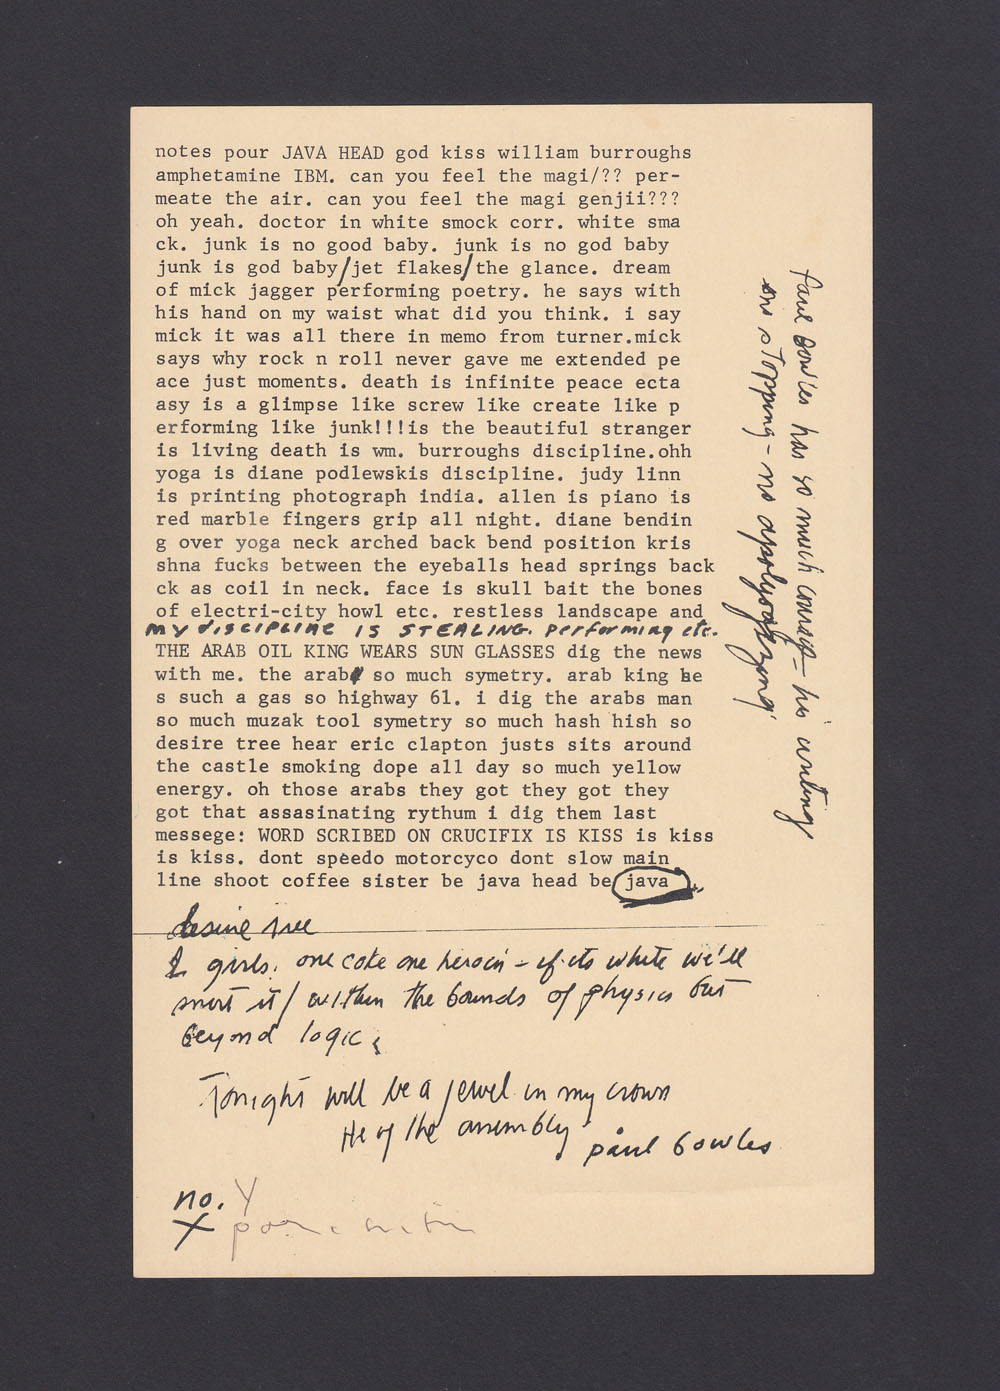 notes pour JAVA HEAD god kiss william burroughs
amphetamine IBM. can you feel the magi/?? per-
meate the air. can you feel the magi genjii???
oh yeah. doctor in white smock corr. white sma
ck. junk is no good baby. junk is no god baby
junk is god baby/jet flakes/the glance. dream
of mick jagger performing poetry. he says with
his hand on my waist what did you think. i say
mick it was all there in memo from turner.mick
says why rock n roll never gave me extended pe
ace just moments. death is infinite peace ecta
asy is a glimpse like screw like create like p
erforming like junk!!!is the beautiful stranger
is living death is wm. burroughs discipline.ohh
yoga is diane podlewskis discipline. judy linn
is printing photograph india. allen is piano is
red marble fingers grip all night. diane bendin
g over yoga neck arched back bend position kris
shna fucks between the eyeballs head springs back
ck as coil in neck. face is skull bait the bones
of electri-city howl etc. restless landscape and
MY DISCIPLINE IS STEALING. performing etc.
THE ARAB OIL KING WEARS SUN GLASSES dig the news
with me. the arab so much symetry. arab king he
s such a gas so highway 61. i dig the arabs man
so much muzak tool symetry so much hash hish so
desire tree hear eric clapton justs sits around
the castle smoking dope all day so much yellow
energy. oh those arabs they got they got they
got that assasinating rythum i dig them last
messege: WORD SCRIBED ON CRUCIFIX IS KISS is kiss
is kiss. dont speedo motorcyco dont slow main
line shoot coffee sister be java head be java
desire tree
2 girls. one coke one heroin - if its white we'll
snort it/ within the bounds of physics but
beyond logic
Tonight will be a jewel in my crown
He of the assembly paul bowles
no. Y
X
Paul Bowles has so much courage - his writing
stopping - no apologizing